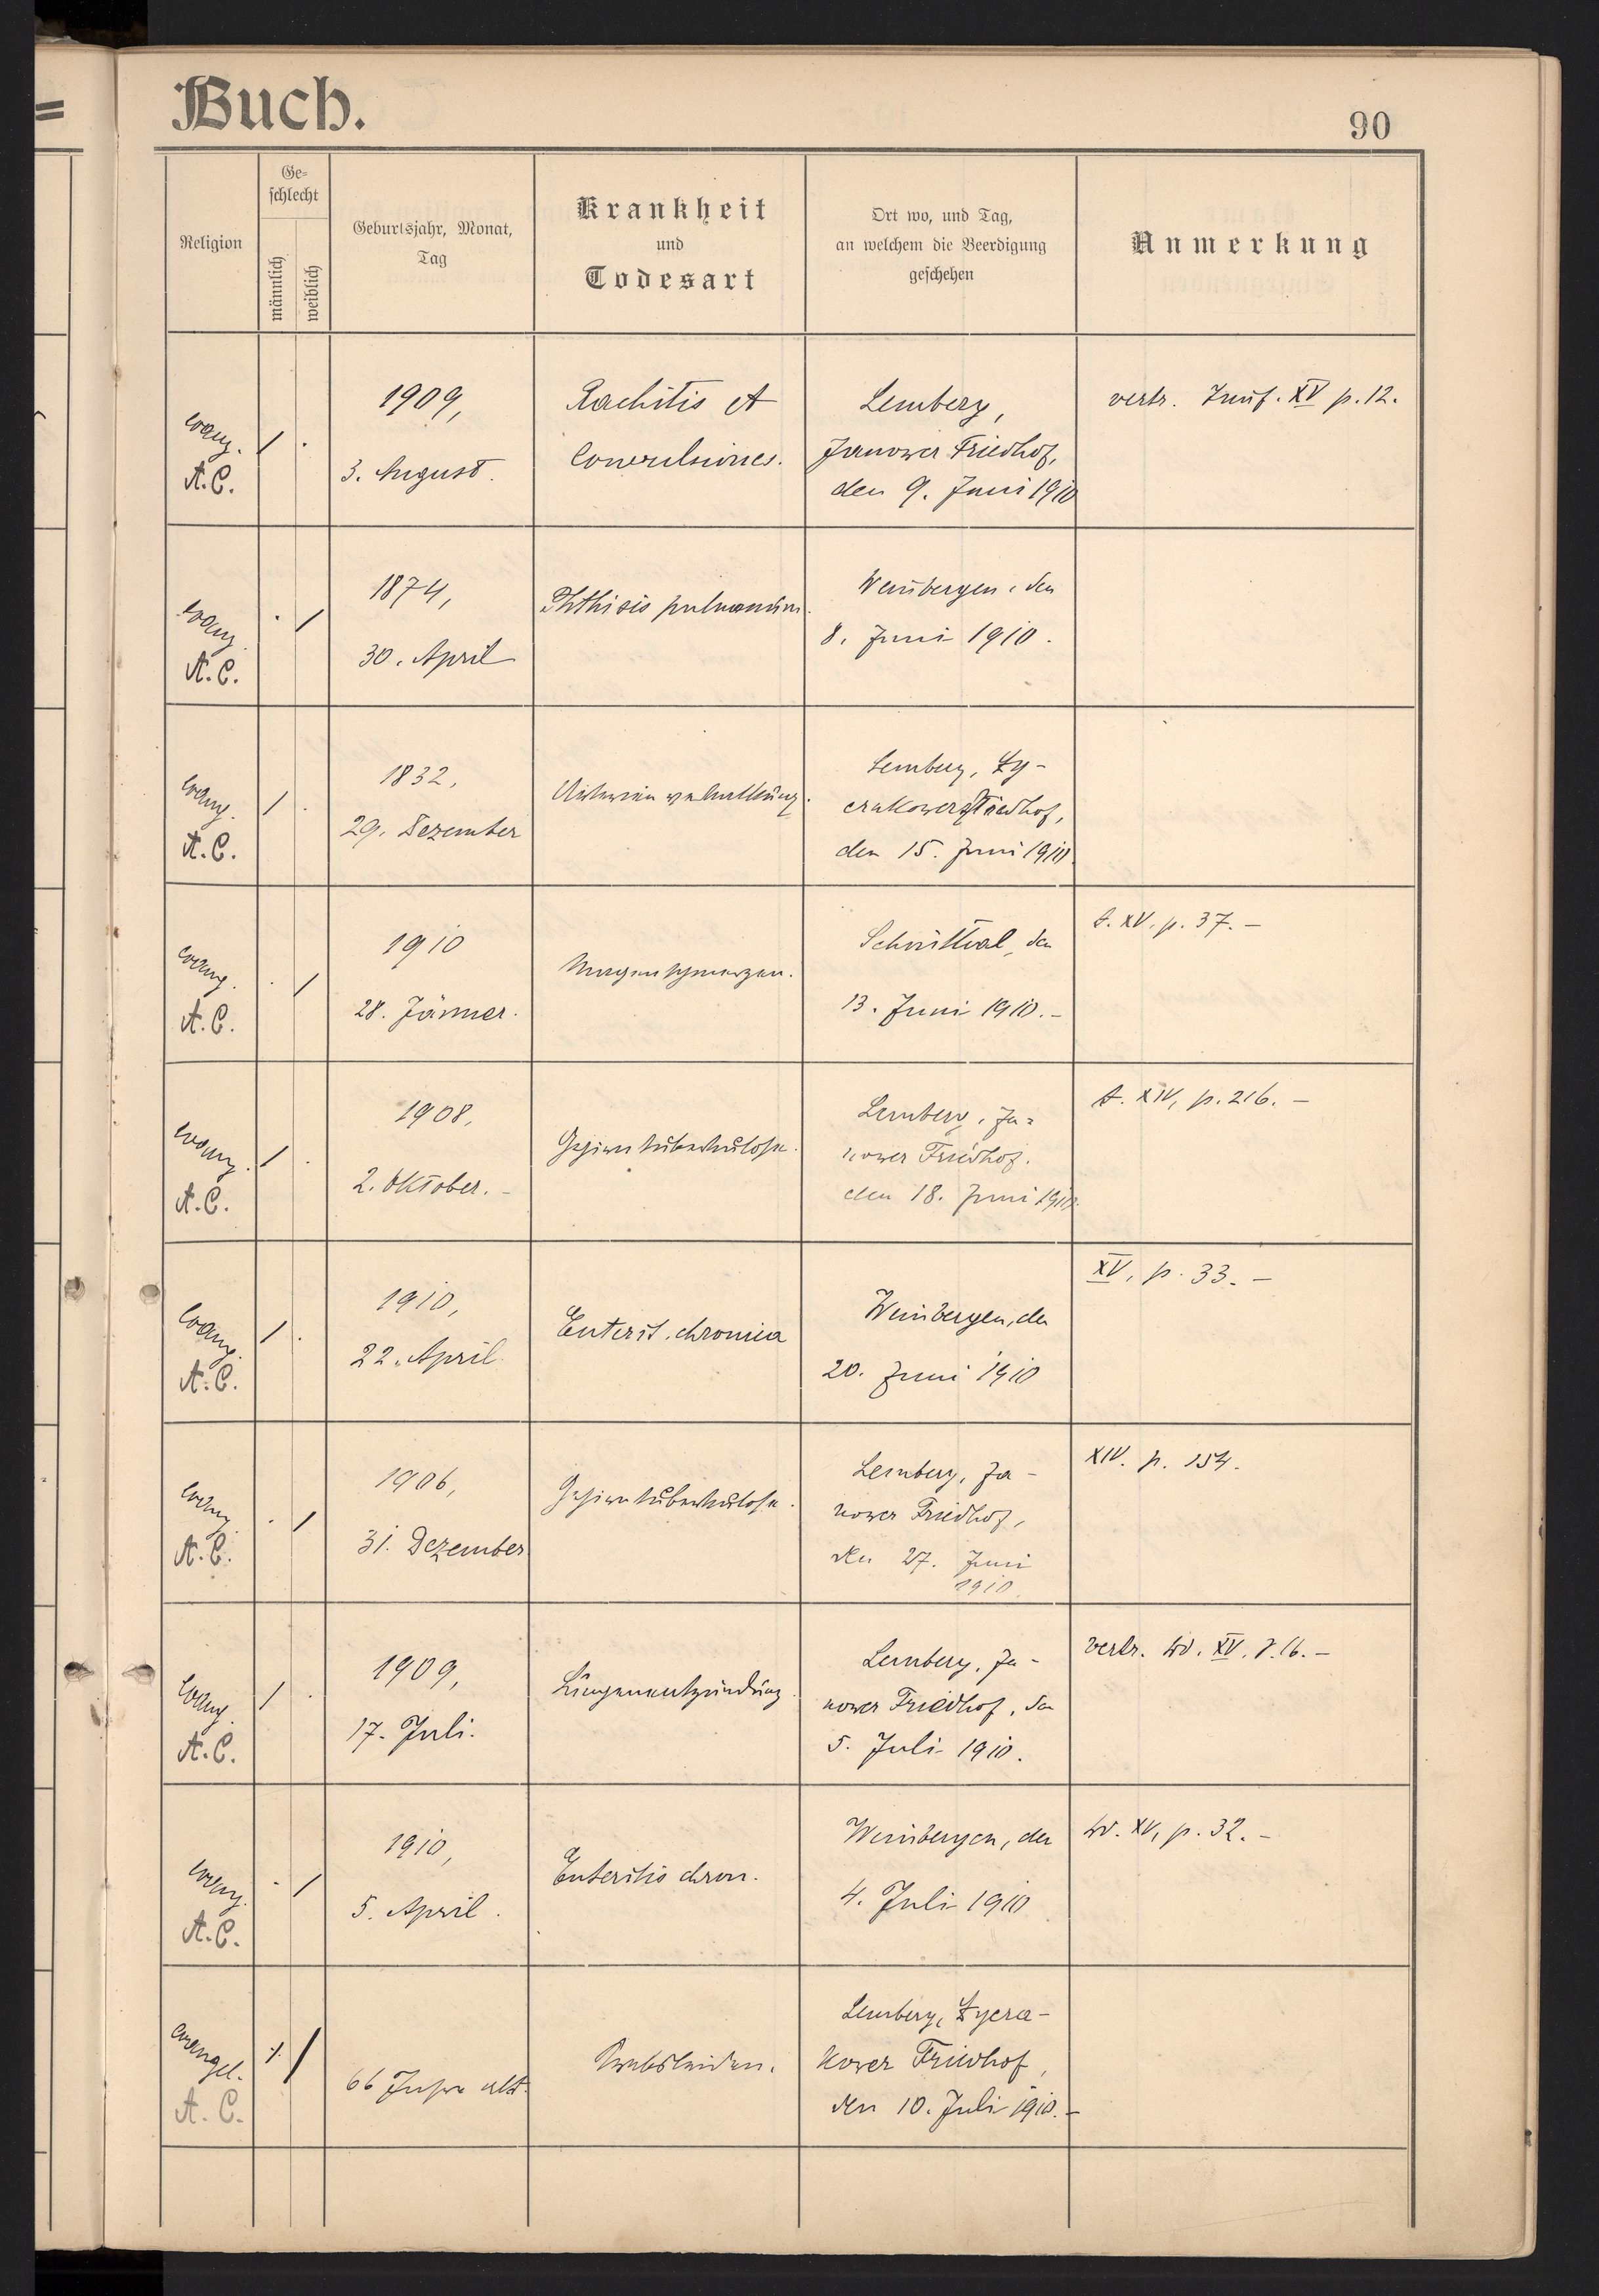 Buch.
90
Religion
Ge-
schlecht
männlich
weiblich
Geburtsjahr, Monat,
Tag
Krankheit
und
Todesart
Ort wo, und Tag,
an welchem die Beerdigung
geschehen
Anmerkung
evang.
A.C.
/ .
1909,
3. August.
Rachitis et
Convulsiones.
Lemberg,
Janower Friedhof,
den 9. Juni 1910
vertr. XV p. 12.
evang.
A.C.
. /
1874,
30. April
Phthisis pulmonum.
Weinbergen, den
8. Juni 1910.
evang.
A.C.
/ .
1832,
29. Dezember
Arterienverkalkung.
Lemberg, Ły-
czakower Friedhof,
den 15. Juni 1910
evang.
A.C.
. /
1910
28. Jänner.
Magenschmerzen.
Schönthal, den
13. Juni 1910.-
t. XV. p. 37. -
evang.
A.C.
/ .
1908,
2. Oktober. -
Gehirntuberkulose.
Lemberg, Ja-
nower Friedhof.
den 18. Juni 1910.
t. XIV, p. 216. -
evang.
A.C.
/ .
1910,
22. April.
Enterit. chronica
Weinbergen, den
20. Juni 1910
XV, p. 33. -
evang.
A.C.
. /
1906,
31. Dezember
Gehirntuberkulose.
Lemberg, Ja-
nower Friedhof,
den 27. Juni
1910.
XIV. p. 154.
evang.
A.C.
/ .
1909,
17. Juli.
Lungenentzündung
Lemberg, Ja-
nower Friedhof, den
5. Juli 1910.
vertr. XV. p. 16. -
evang.
A.C.
. /
1910,
5. April.
Enteritis chron.
Weinbergen, den
4. Juli 1910
XV, p. 32. -
evangel.
A.C.
/
66 Jahre alt.
Krebsleiden.
Lemberg, Łycza-
kower Friedhof,
den 10. Juli 1910. -